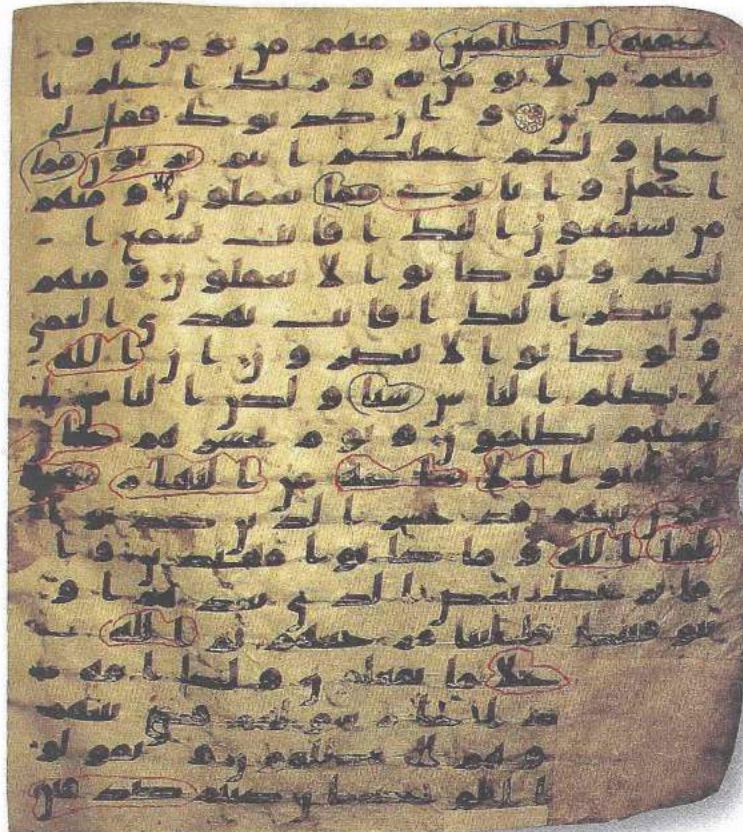 عقبه الظلمين و منهم من يومن به و
منهم من لا يومن به و ربك اعلم با
لمفسدين و ان كذبوك فقل لي
عملي و لكم عملكم انتم بريون مما
اعمل و انا بري مما تعملون و منهم
من يستمعون اليك افانت تسمع ا
لصم و لو كانوا لا يعقلون و منهم
من ينظر اليك افانت تهدي العمي
و لو كانوا لا يبصرون ان الله
لا يظلم الناس شيا و لكن الناس ا
نفسهم يظلمون و يوم يحشرهم كان
لم يلبثوا الا ساعه من النهار يتعا
رفون بينهم قد خسر الذين كذبوا
بلقا الله و ما كانوا مهتدين و ا
ما نرينك بعض الذي نعدهم ا و
نتوفينك فالينا مرجعهم ثم الله
علي ما يفعلون و لكل امه
جا رسولهم قضي بينهم
و هم لا يظلمون و يقولون
ان كنتم صدقين